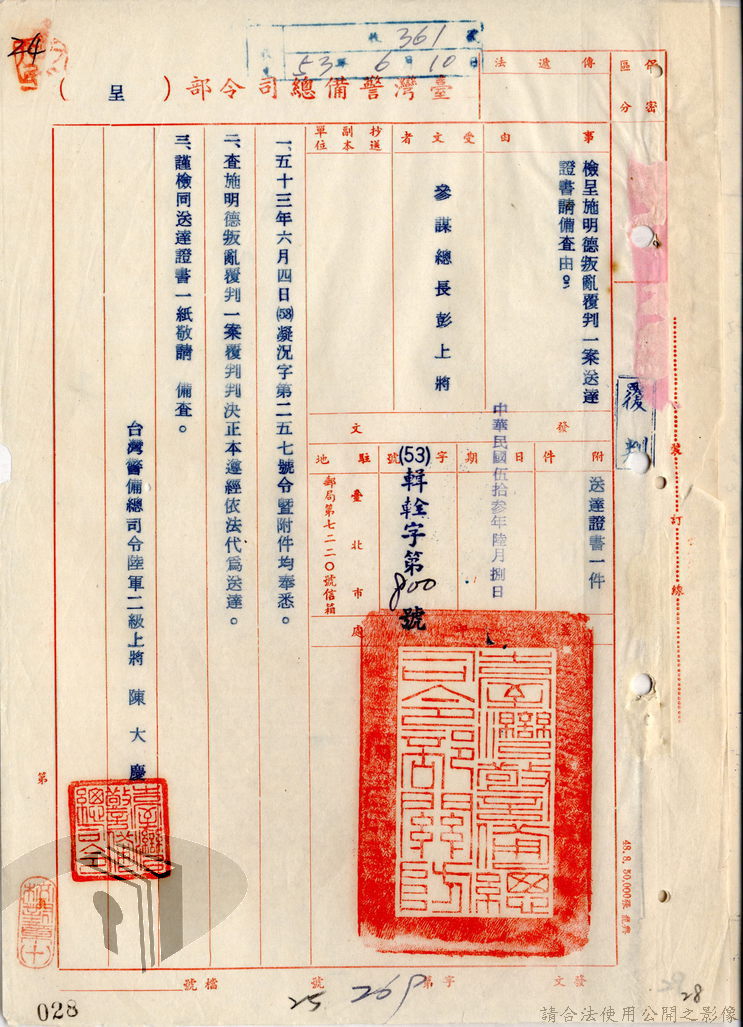 24
收 361 號
53年6月10日
臺灣警備總司令部（呈）
保密
區分
傳遞法
事由
受文者
抄送
副本
單位
檢呈施明德叛亂覆判一案送達
證書請備查由。
參謀總長彭上將
發文
附件
日期
字號
駐地
送達證書一件
中華民國伍拾參年陸月捌日
(53)輯銓字第800號
臺北市
郵局第七二二〇號信箱
處
覆判
裝訂線
一、五十三年六月四日(53)凝況字第二五七號令暨附件均奉悉。
二、查施明德叛亂覆判一案覆判判決正本遵經依法代為送達。
三、謹檢同送達證書一紙敬請 備查。
台灣警備總司令陸軍二級上將 陳大慶
臺灣警備總司令部關防
臺灣警備總司令
第
48.8. 50,000張
發文
字第
號
檔號
25 268
028
28
請合法使用公開之影像